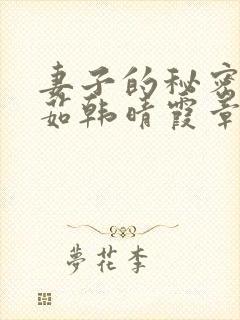 妻子的秘密
茹韩晴霞章
夢花李